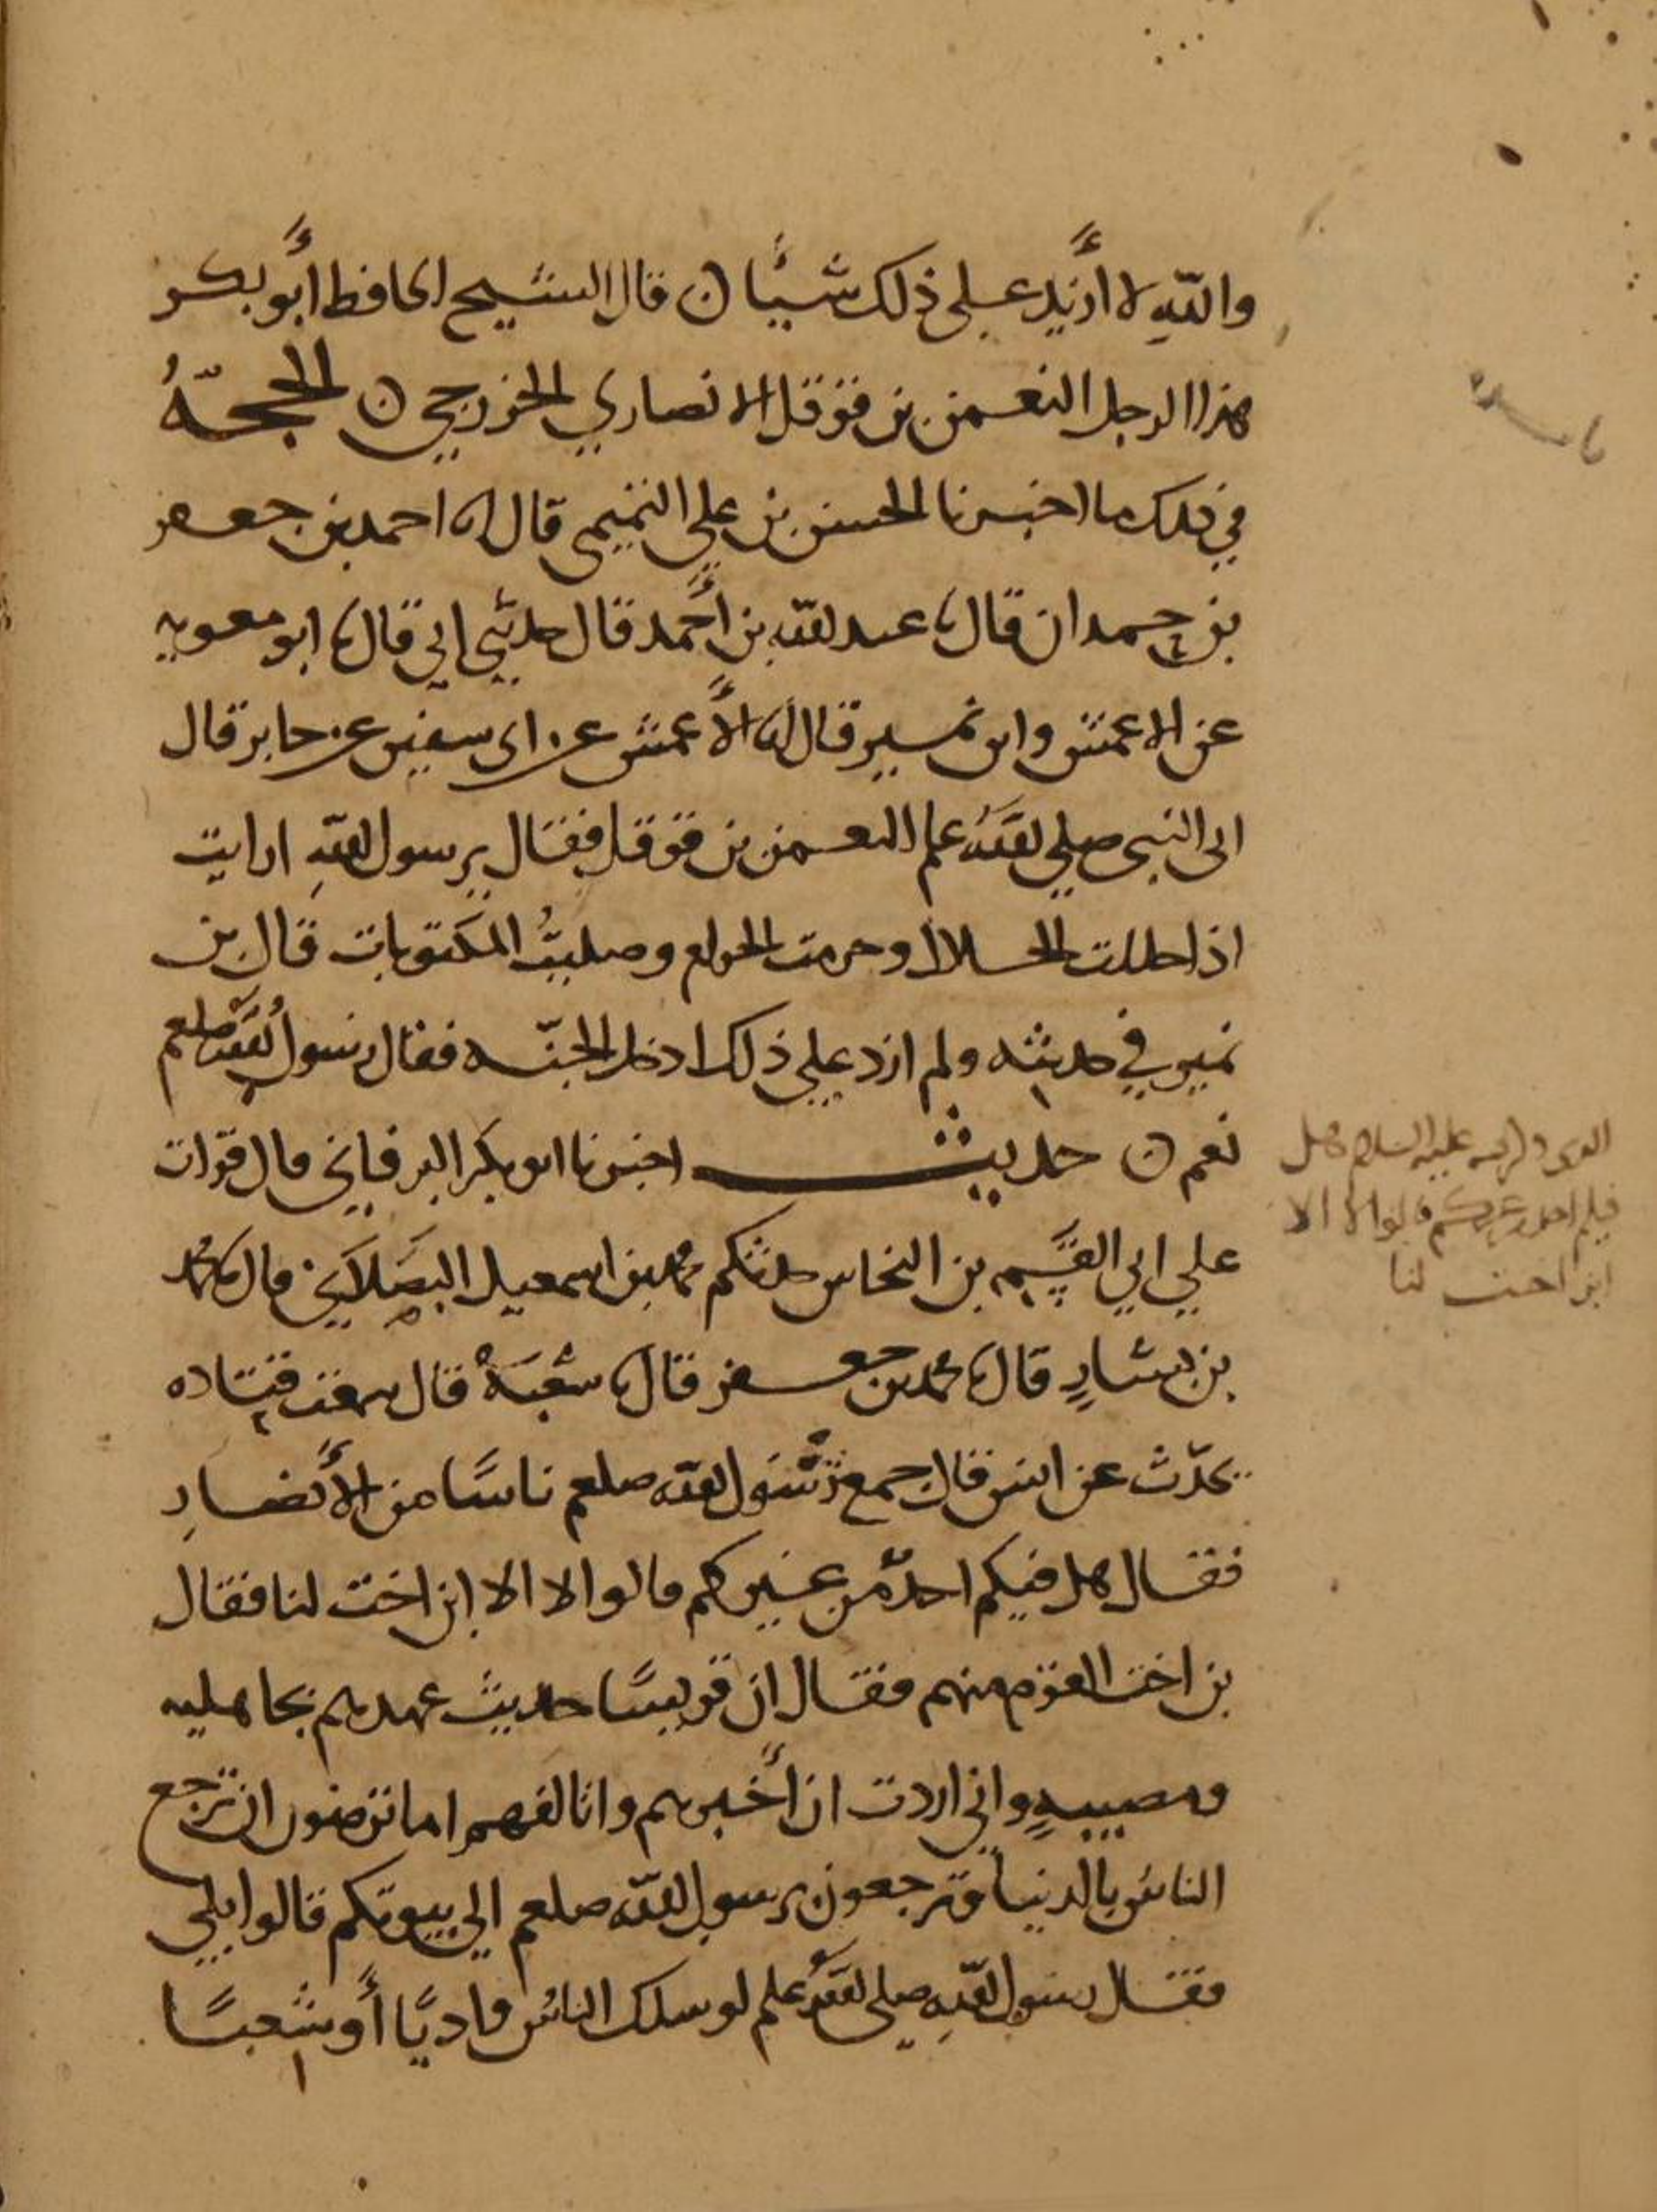 والله لا أزيد على ذلك شيئا ن قال الشيخ الحافظ أبو بكر
هذا الرجل النعمن بن قوقل الانصاري الخزرجي ن الحجة
في ذلك ما اخبرنا الحسن بن علي التميمي قال انا احمد بن جعفر
بن حمدان قال نا عبد الله بن أحمد قال حدثني ابي قال نا ابو معويه
عن الاعمش وابن نمير قال انا الأعمش عن ابي سفين عن جابر قال
اتى النبي صلى الله علم النعمن بن قوقل فقال يرسول الله ارايت
اذا حللت الحلال وحرمت الحرام وصليتُ المكتوبات قال بن
نمير في حديثه ولم ازد على ذلك ادخل الجنّه فقال رسولُ الله صلعم
نعم ن حديث اخبرنا ابو بكر البرقاني قال قرات
علي ابي القسم بن النخاس حدثكم محمد بن اسمعيل البصَلاَني قال نا محمد
بن بشارٍ قال نا محمد بن جعفر قال نا شعبَةُ قال سمعت قتاده
يحدّث عن انس قال جمع رسُول الله صلعم ناسًا من الأنصارِ
فقال هل فيكم احدٌ من غيركم قالوا لا الا ابن اخت لنا فقال
بن اخت القوم منهم فقال ان قريشًا حديث عهدهم بجاهليه
ومصيبيهٍ واني اردت ان أخبرهم واتالفهم اما ترضون ان ترجع
الناسُ بالدنيا وترجعون برسول الله صلعم الي بيوتكم قالوا بلي
فقال رسول الله صلى الله علم لو سلك الناسُ واديًا أو شعبًا
عليه السلام هل
فيكم احد غيركم قالوا لا الا
ابن اخت لنا